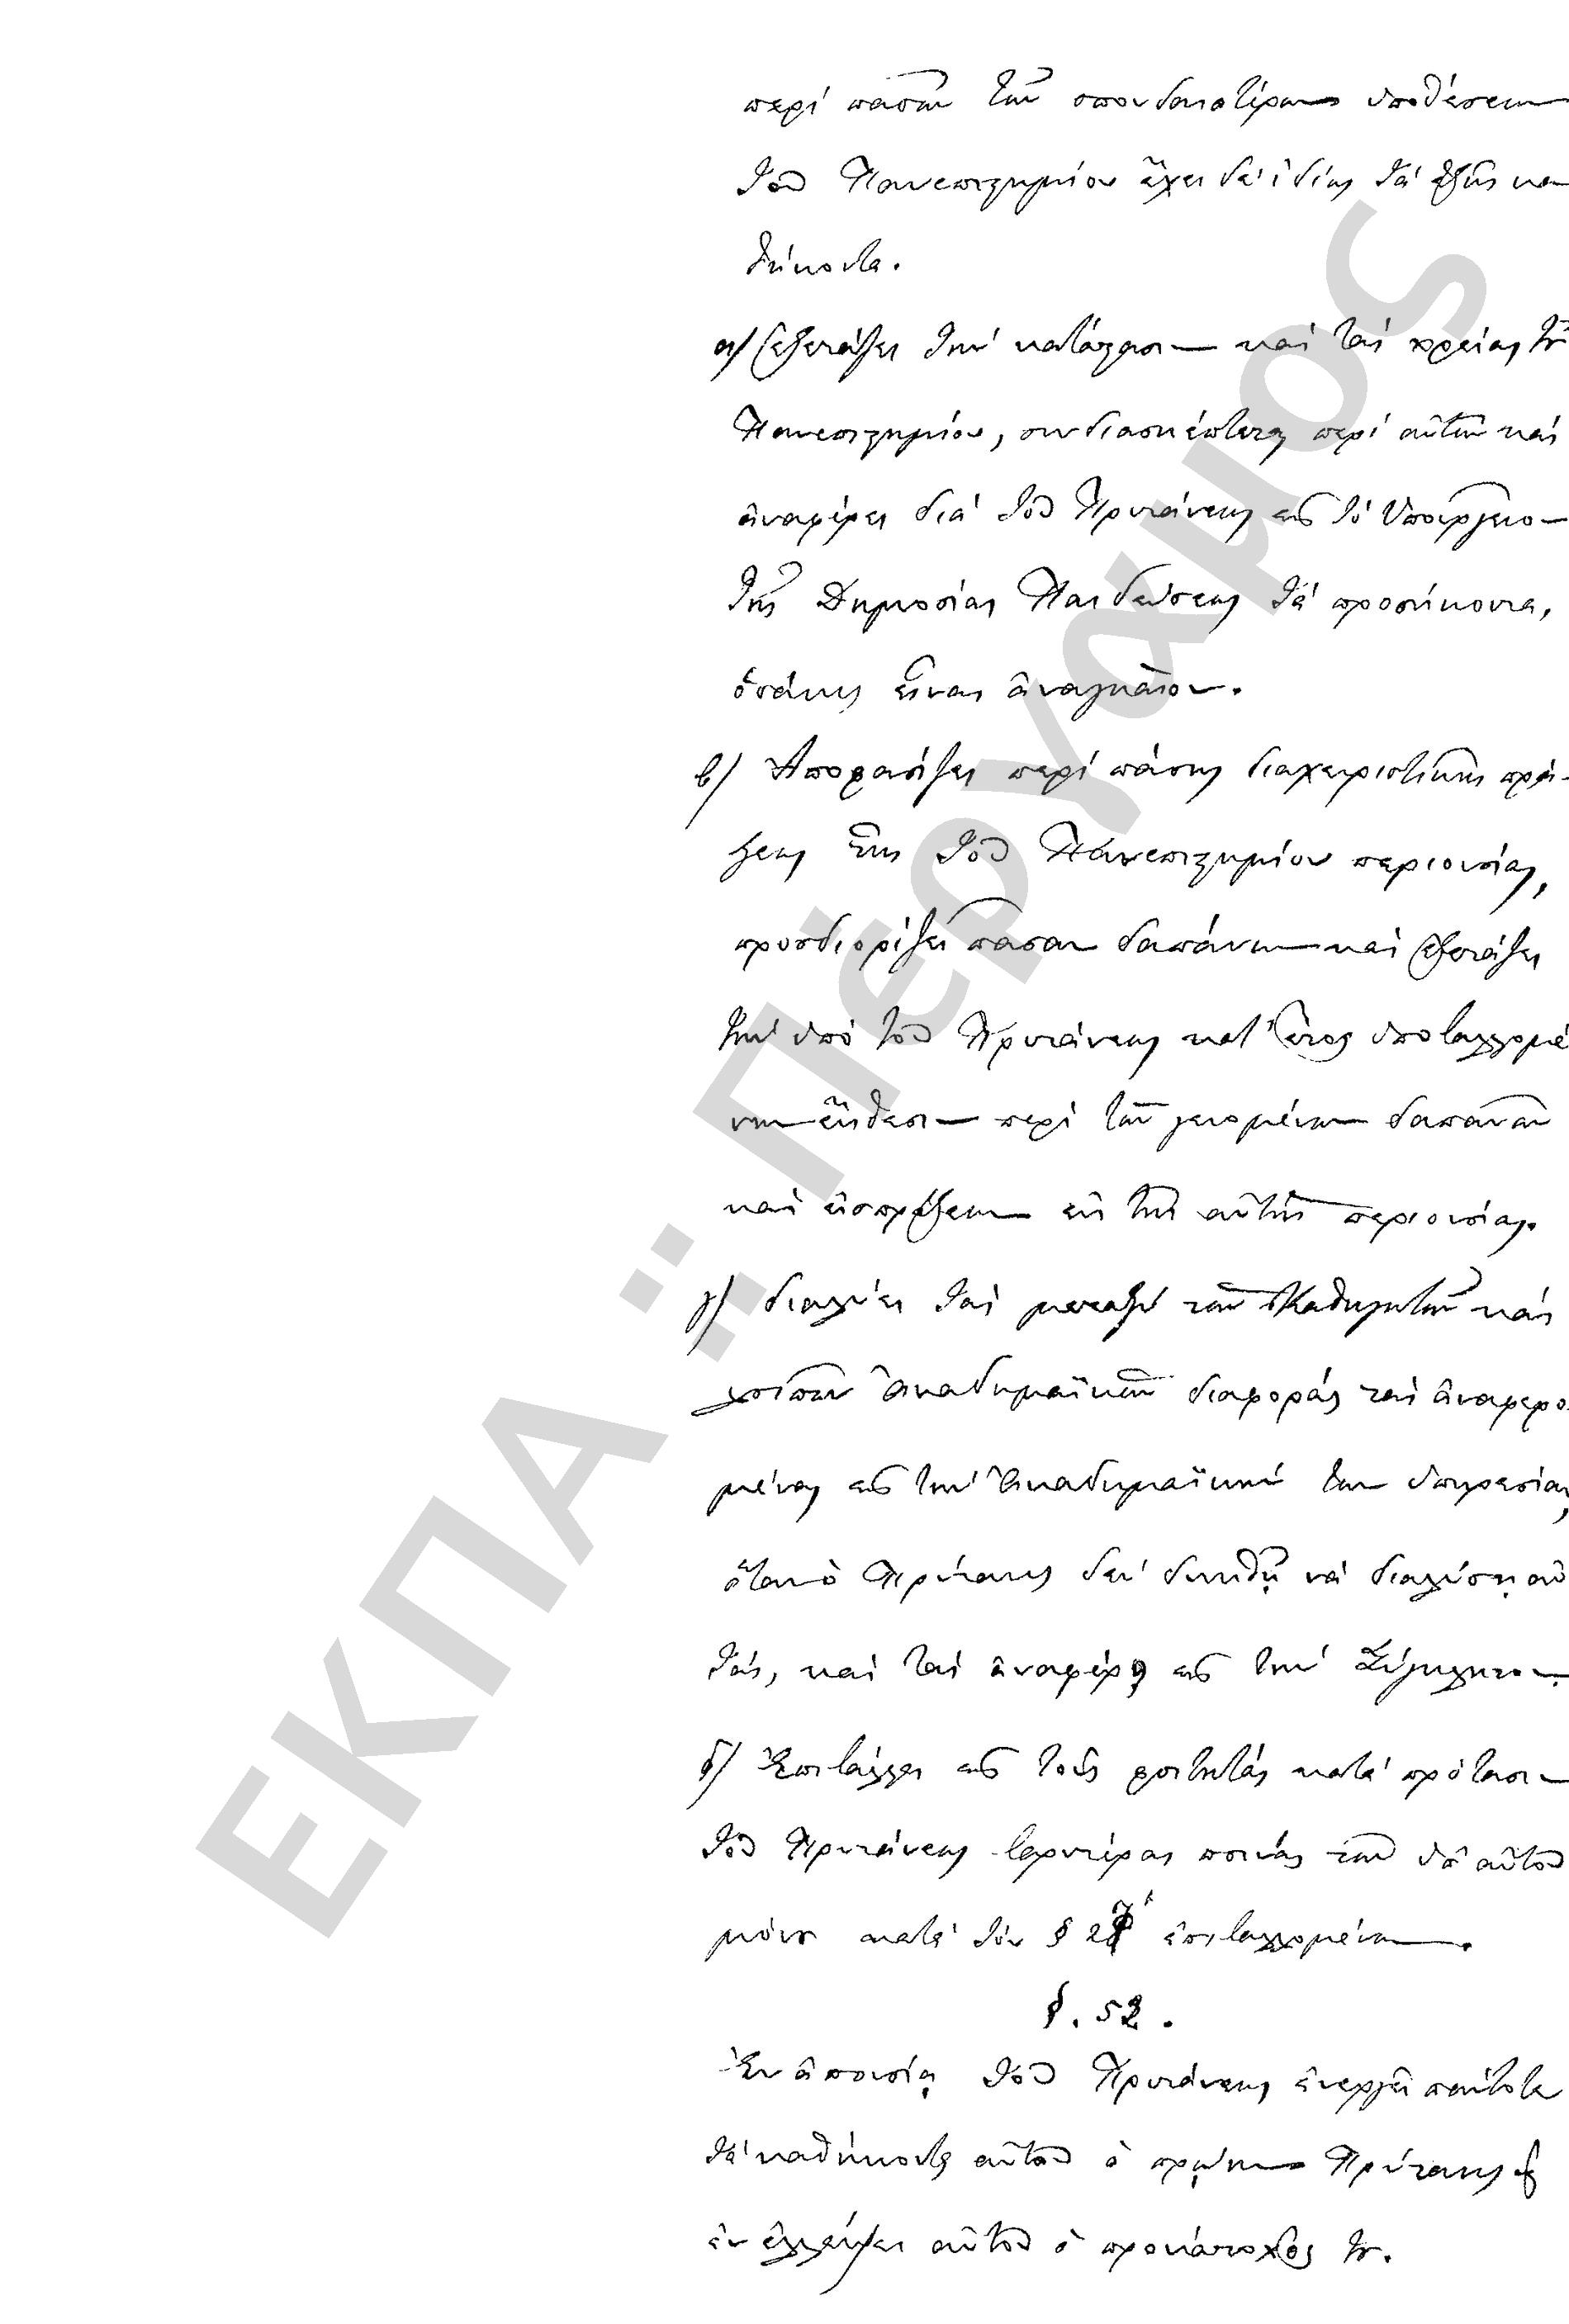 περὶ πασῶν τῶν σπουδαιοτέρων ὑποθέσεων
τοῦ Πανεπιστημίου ἔχει δὲ ἰδίως τὰ ἑξῆς κα
θήκοντα.
α) ἐξετάζει τὴν κατάστασιν καὶ τὰς χρείας τοῦ
Πανεπιστημίου, συνδιασκέπτεται περὶ αὐτῶν καὶ
ἀναφέρει διὰ τοῦ Πρυτάνεως εἰς τὸ Ὑπουργεῖον
τῆς Δημοσίας Παιδεύσεως τὰ προσήκοντα,
ὁσάκις εἶναι ἀναγκαῖον.
β) Ἀποφασίζει περὶ πάσης διαχειριστικῆς πρά-
ξεως τῆς τοῦ Πανεπιστημίου περιουσίας,
προσδιορίζει πᾶσαν δαπάνην καὶ ἐξετάζει
τὴν ὑπὸ τοῦ Πρυτάνεως κατ' ἔτος ὑποβαλλομέ
νην ἔκθεσιν περὶ τῶν γενομένων δαπανῶν
καὶ εἰσπράξεων ἐκ τῆς αὐτῆς περιουσίας.
γ) διαλύει τὰς μεταξὺ τῶν Καθηγητῶν καὶ
λοιπῶν Ἀκαδημαϊκῶν διαφορὰς τὰς ἀναφερο
μένας εἰς τὴν Ἀκαδημαϊκήν των ὑπηρεσίαν,
ὅταν ὁ Πρύτανις δὲν δυνηθῇ νὰ διαλύσῃ αὐ
τάς, καὶ τὰς ἀναφέρῃ εἰς τὴν Σύγκλητον.
δ) Ἐπιβάλλει εἰς τοὺς φοιτητὰς κατὰ πρότασιν
τοῦ Πρυτάνεως βαρυτέρας ποινὰς τῶν ὑπ' αὐτοῦ
μόνου κατὰ τὸν § 27 ἐπιβαλλομένων.
§. 52.
Ἐν ἀπουσίᾳ τοῦ Πρυτάνεως ἐνεργεῖ πάντοτε
τὰ καθήκοντα αὐτοῦ ὁ πρώην Πρύτανις &
ἐν ἐλλείψει αὐτοῦ ὁ προκάτοχός του.